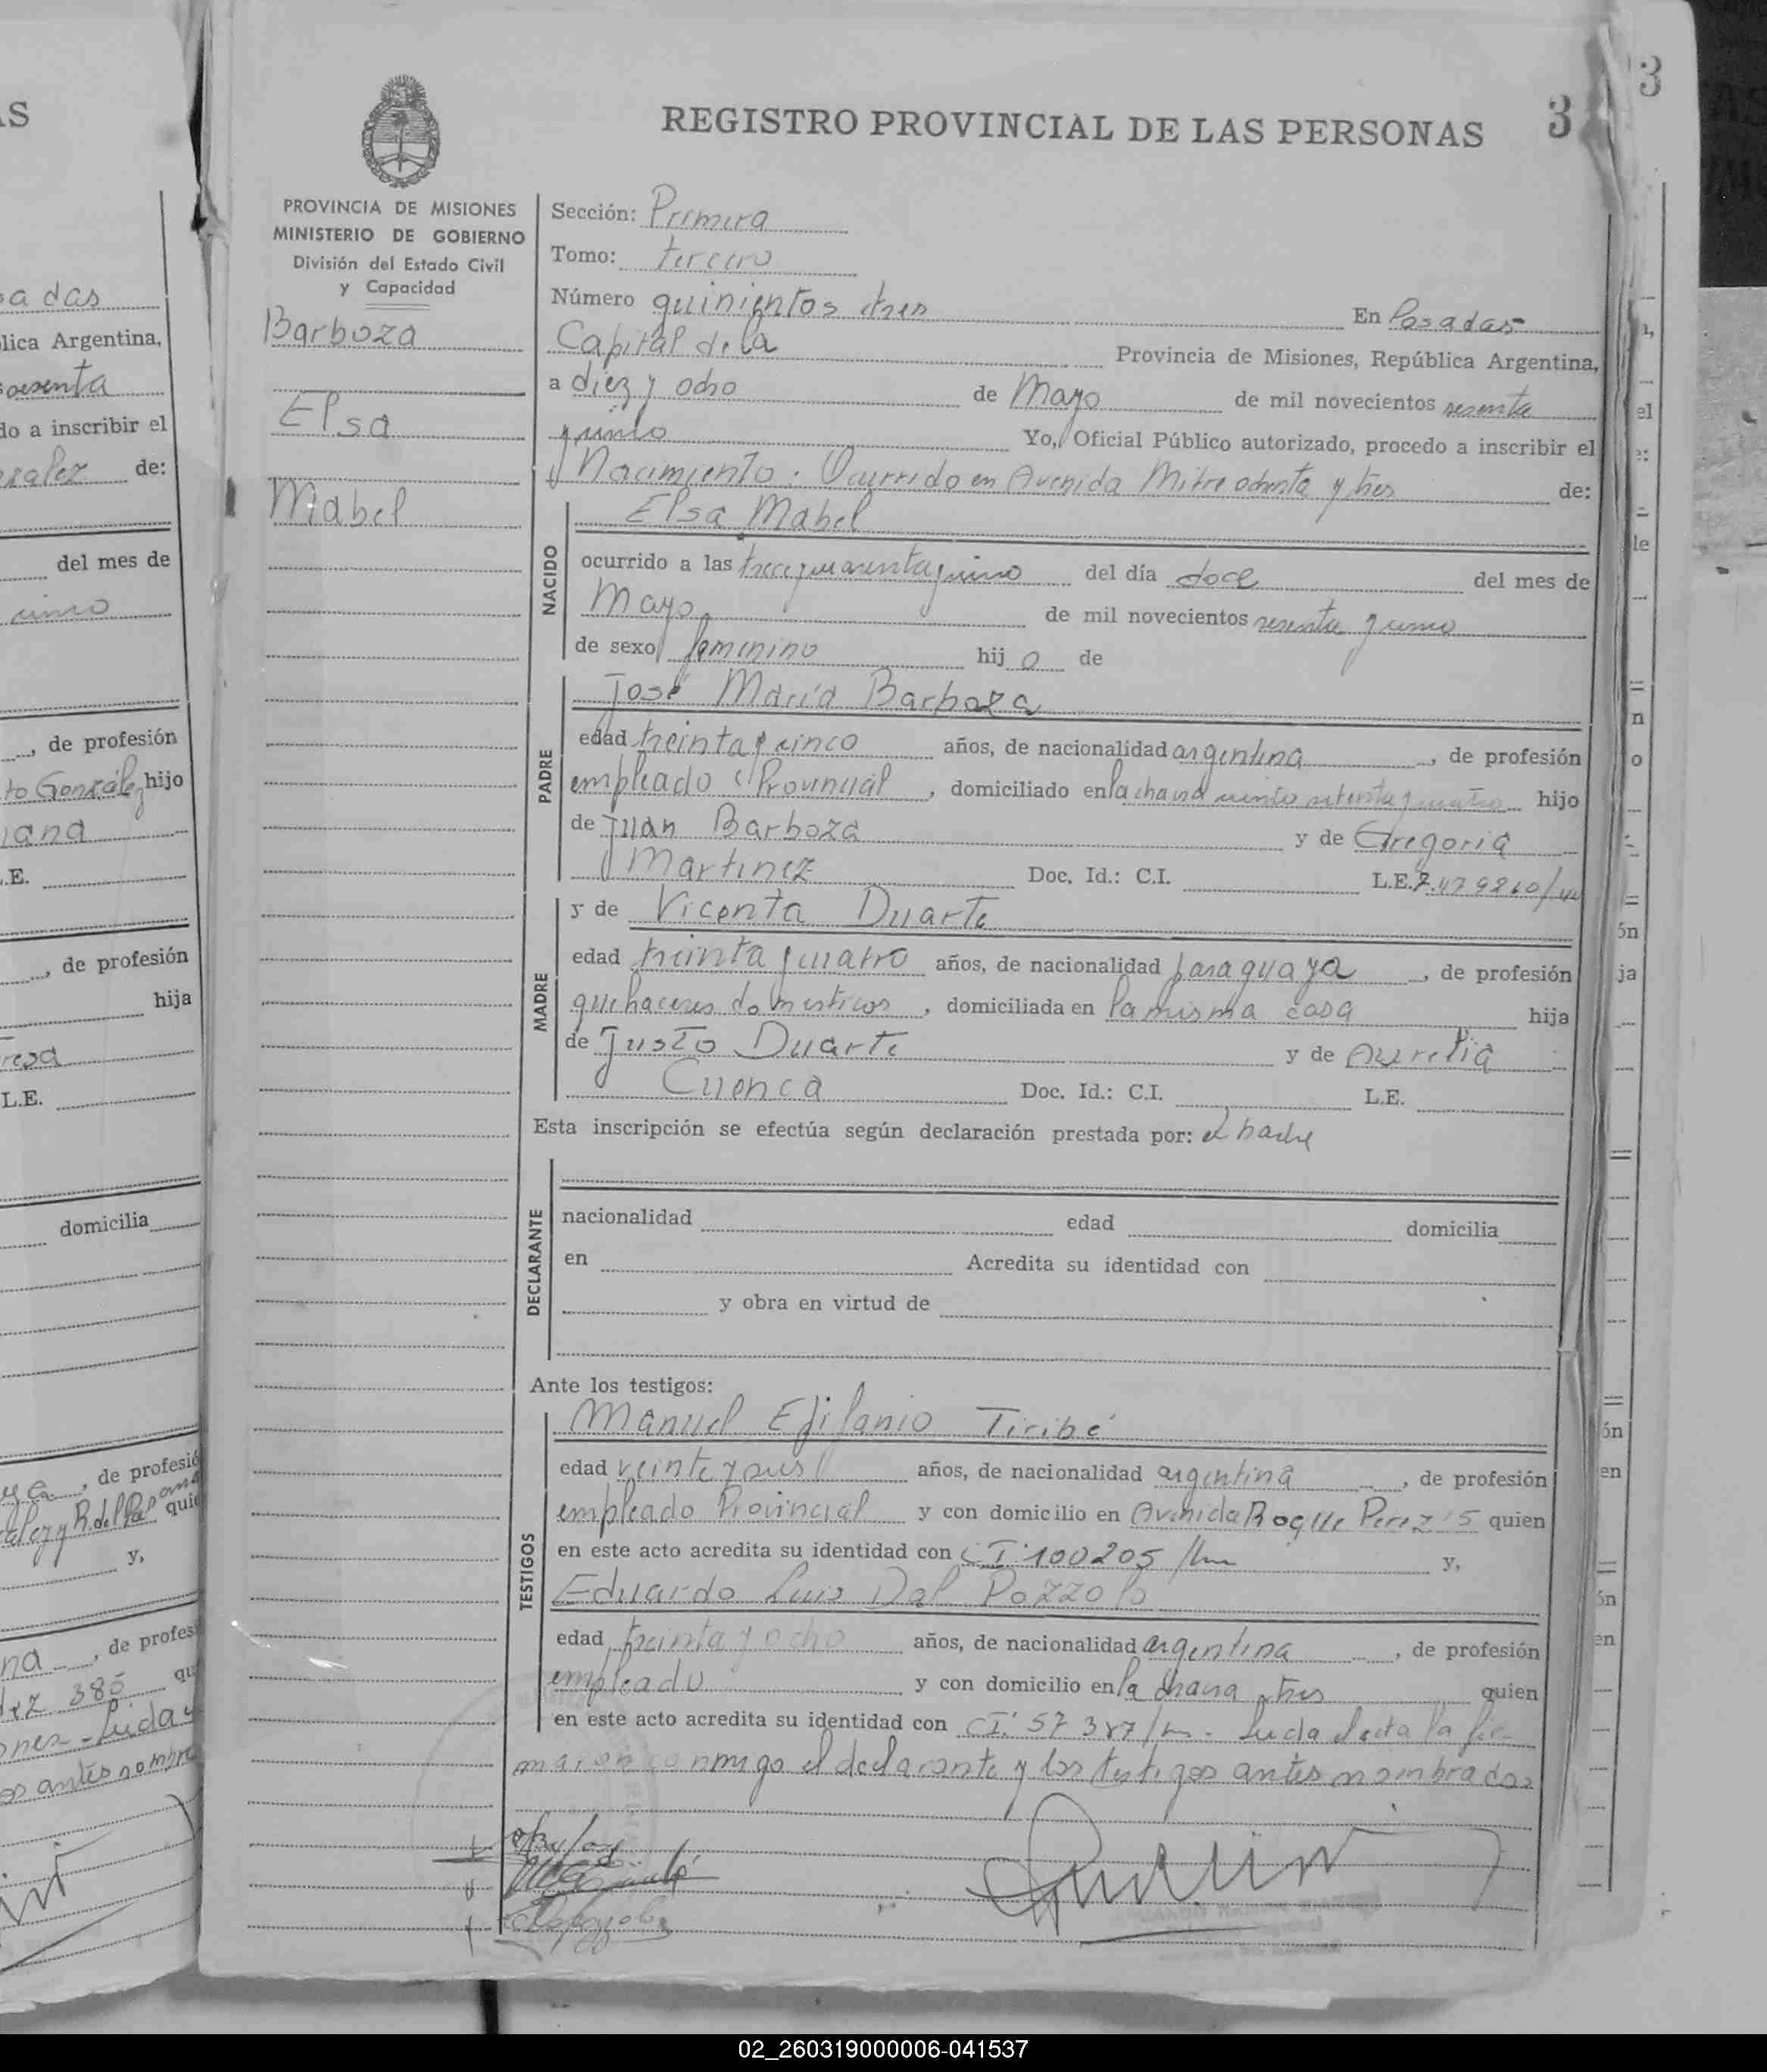 AS
REGISTRO PROVINCIAL DE LAS PERSONAS
3
3
PROVINCIA DE MISIONES
MINISTERIO DE GOBIERNO
División del Estado Civil
y Capacidad
Barboza
Elsa
Mabel
Sección: Primera
Tomo: tercero
Número quinientos tres En Posadas
Capital de la Provincia de Misiones, República Argentina,
a diez y ocho de Mayo de mil novecientos sesenta
y cinco Yo, Oficial Público autorizado, procedo a inscribir el
Nacimiento. Ocurrido en Avenida Mitre ochenta y tres de:
NACIDO
Elsa Mabel
ocurrido a las trece y cuarenta y cinco del día doce del mes de
Mayo de mil novecientos sesenta y cinco
de sexo femenino hij a de
PADRE
José María Barboza
edad treinta y cinco años, de nacionalidad argentina, de profesión
empleado Provincial, domiciliado en la chacra ciento setenta y cuatro hijo
de Juan Barboza y de Gregoria
Martinez Doc. Id.: C.I. L.E. 7.479860/
MADRE
y de Vicenta Duarte
edad treinta y cuatro años, de nacionalidad paraguaya, de profesión
quehaceres domesticos, domiciliada en la misma casa hija
de Justo Duarte y de Aurelia
Cuenca Doc. Id.: C.I. L.E.
Esta inscripción se efectúa según declaración prestada por: el padre
DECLARANTE
nacionalidad edad domicilia
en Acredita su identidad con
y obra en virtud de
Ante los testigos:
TESTIGOS
Manuel Epifanio Tiribé
edad veinte y años, de nacionalidad argentina, de profesión
empleado Provincial y con domicilio en Avenida Roque Perez 15 quien
en este acto acredita su identidad con CI. 100205 / y,
Eduardo Luis Dal Pozzolo
edad treinta y ocho años, de nacionalidad argentina, de profesión
empleado y con domicilio en la chacra tres quien
en este acto acredita su identidad con CI. 57387/ Leida el acta la fir-
maron conmigo el declarante y los testigos antes nombrados
adas
lica Argentina,
sesenta
do a inscribir el
de:
del mes de
cinco
de profesión
to González hijo
.E.
de profesión
hija
L.E.
domicilia
de profesió
quie
y,
na, de profes
385 qu
antes nombra
02_260319000006-041537